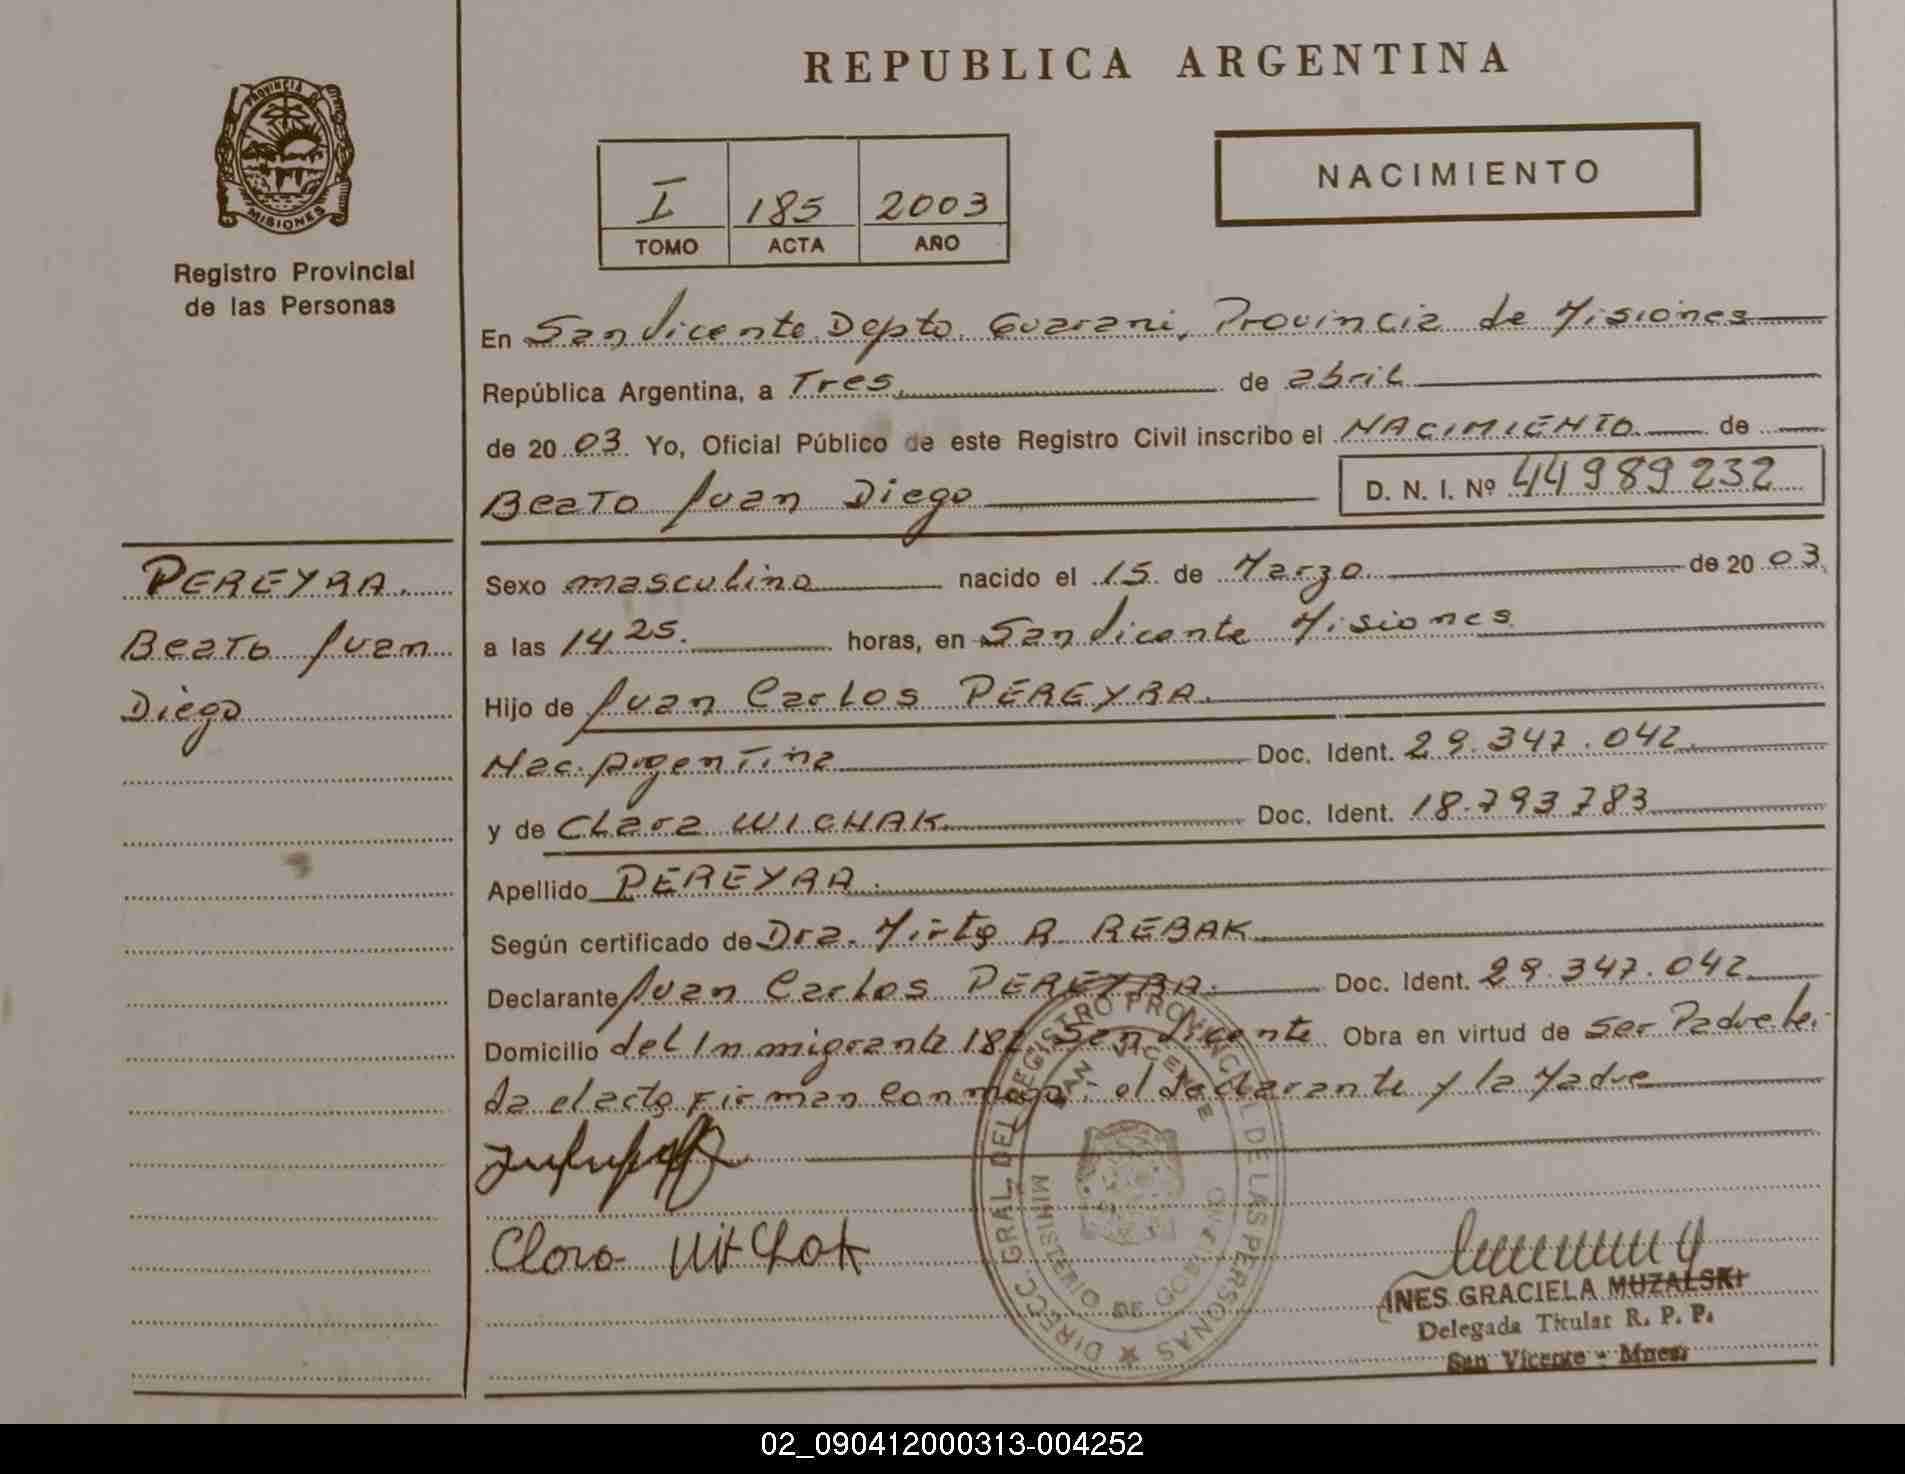 REPUBLICA ARGENTINA
PROVINCIA DE
MISIONES
Registro Provincial
de las Personas
I 185 2003
TOMO ACTA AÑO
NACIMIENTO
En San Vicente Depto. Guarani, Provincia de Misiones
República Argentina, a Tres de abril
de 2003. Yo, Oficial Público de este Registro Civil inscribo el NACIMIENTO de
Beato Juan Diego D. N. I. Nº 44989232
PEREYRA.
Beato Juan
Diego
Sexo masculino nacido el 15 de Marzo de 2003.
a las 14 25. horas, en San Vicente Misiones
Hijo de Juan Carlos PEREYRA.
Nac. Argentina Doc. Ident. 29.347.042
y de Clara WICHAK Doc. Ident. 18.793783
Apellido PEREYRA.
Según certificado de Dra. Mirta R REBAK
Declarante Juan Carlos PEREYRA. Doc. Ident. 29.347.042
Domicilio del Inmigrante 182 San Vicente Obra en virtud de ser Padre le-
da el acto Firman conmigo: el declarante y la Madre
Clara Witchak
DIRECC. GRAL. DEL REGISTRO PROVINCIAL DE LAS PERSONAS
SAN VICENTE
MINISTERIO DE GOBIERNO
INES GRACIELA MUZALSKI
Delegada Titular R. P. P.
San Vicente - Mnes.
02_090412000313-004252